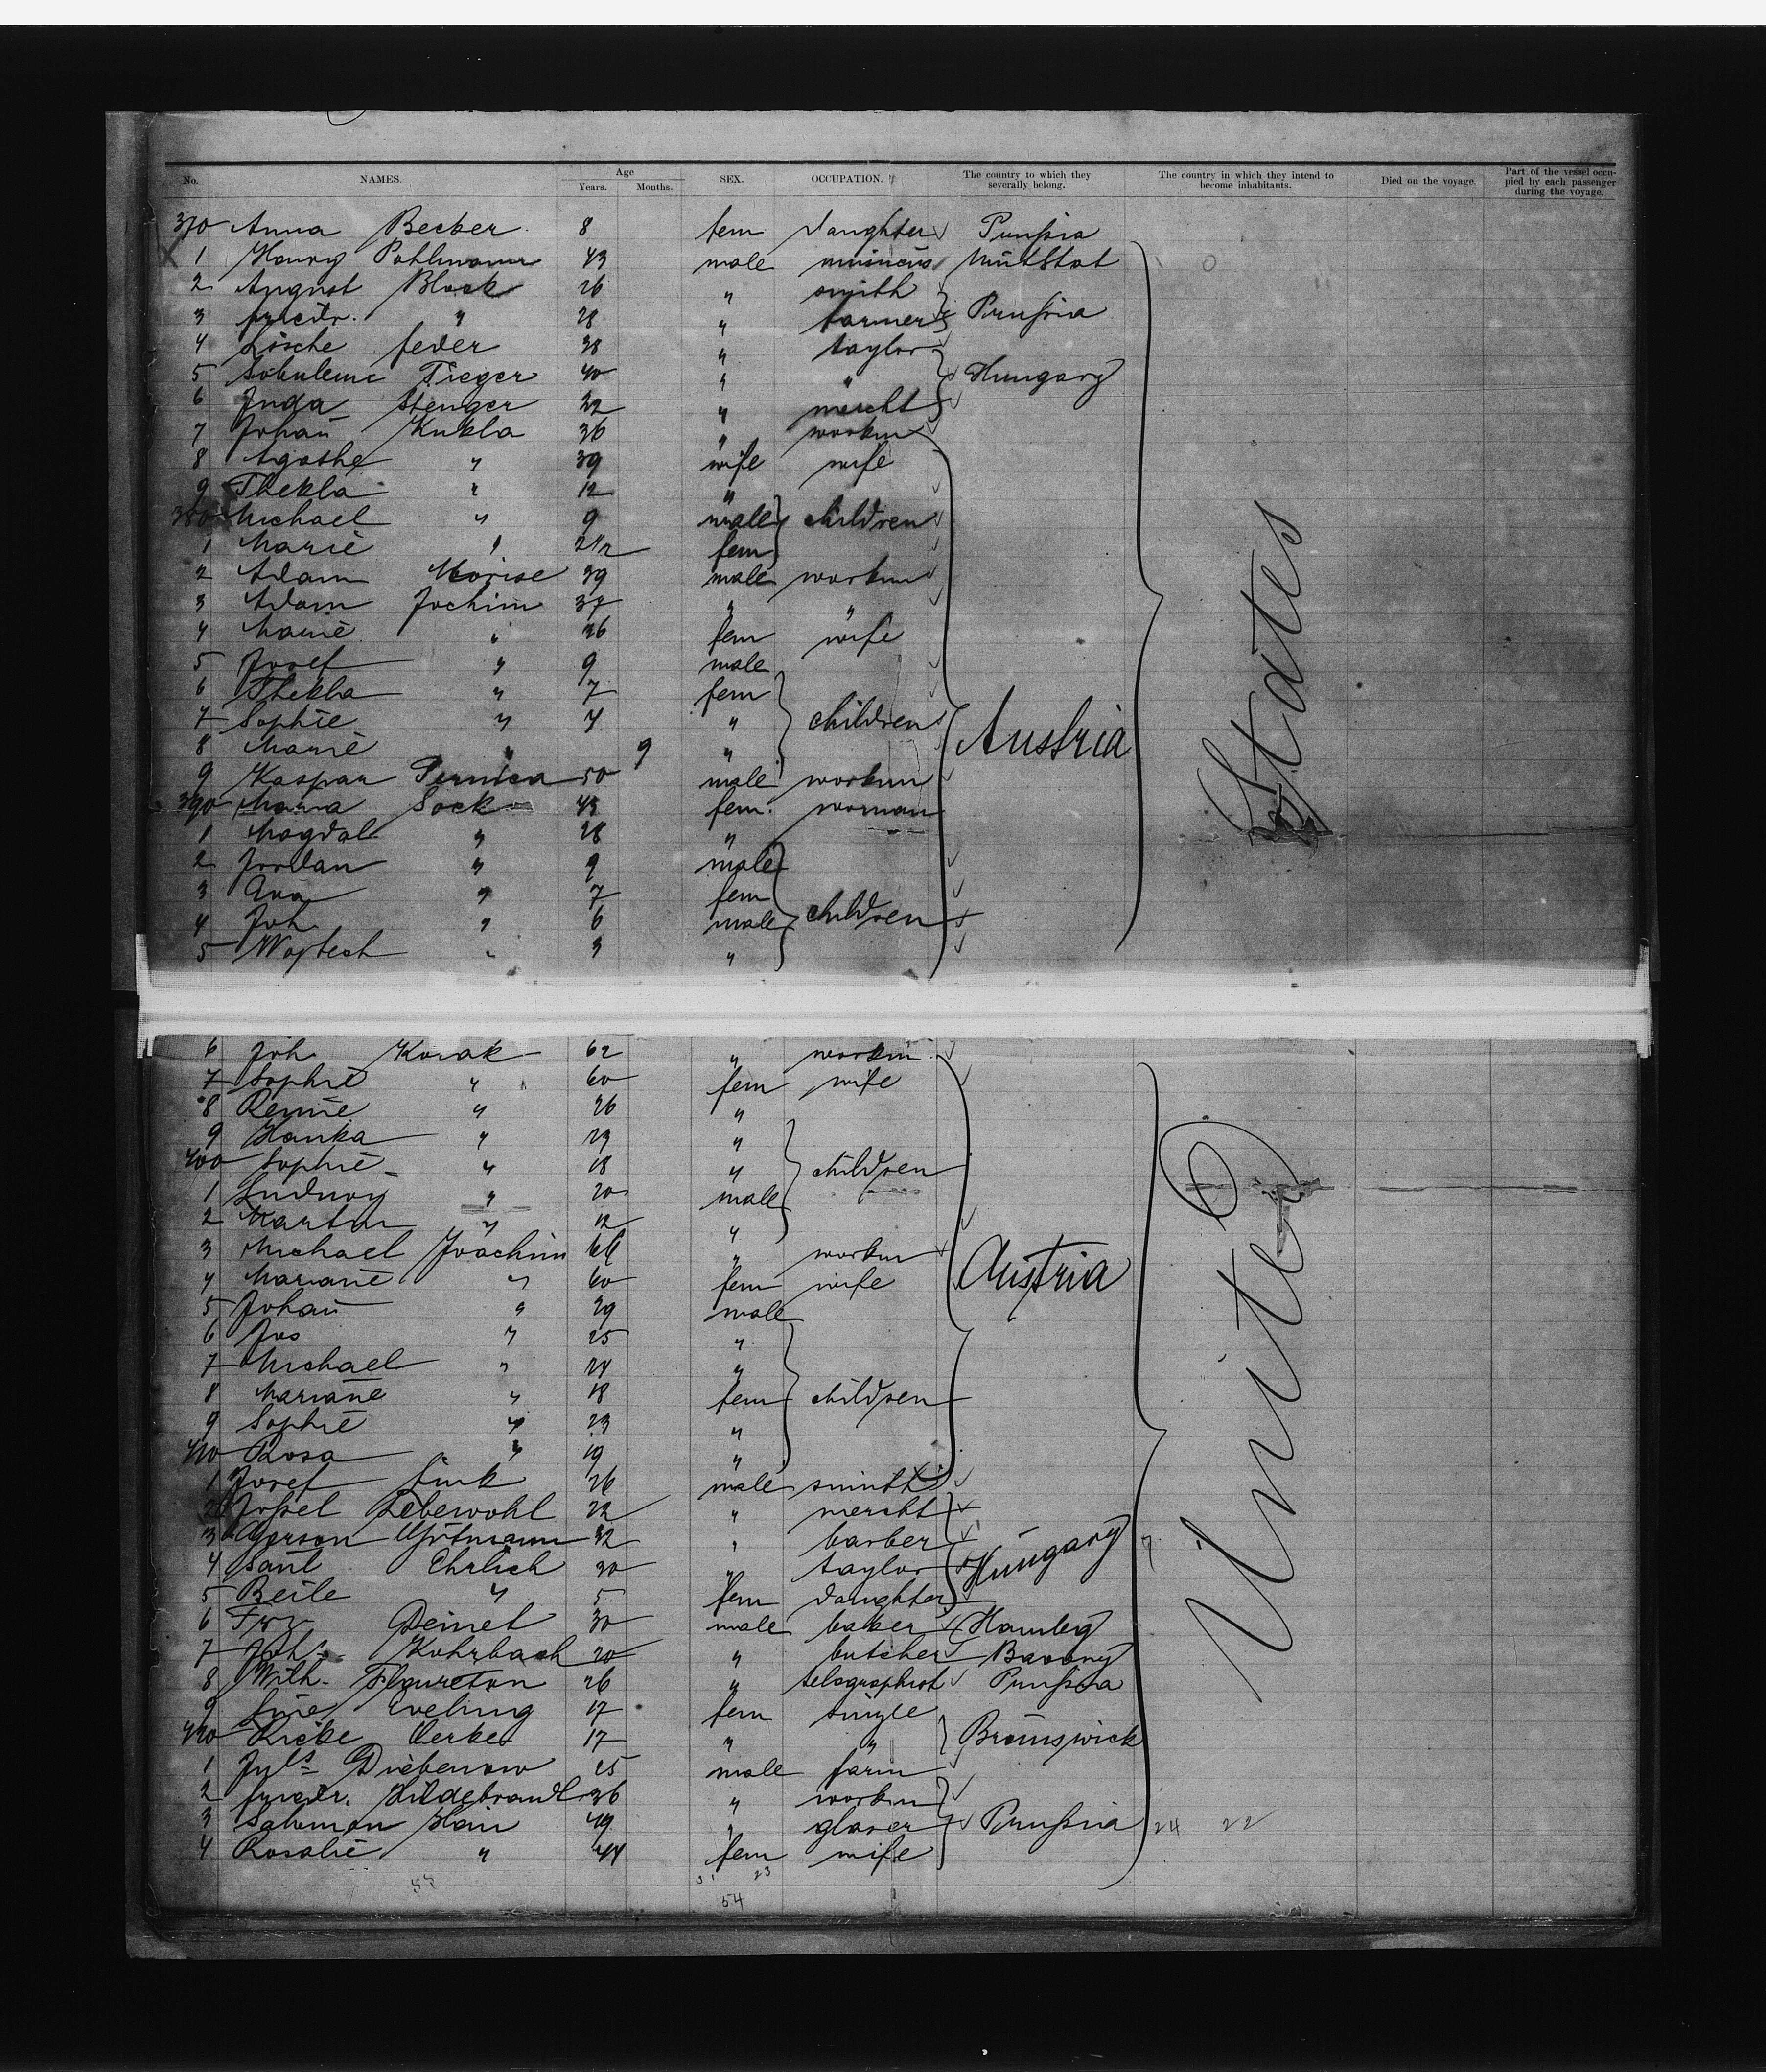 No. NAMES. Age Years. Months. SEX. OCCUPATION. The country to which they severally belong. The country in which they intend to become inhabitants. Died on the voyage. Part of the vessel occupied by each passenger during the voyage.
370 Anna Becker 8 fem daughter Prußia
1 Henry Pohlmann 43 male
2 August Block 26 " smith
3 Friedr. " 28 " farmer Prußia
4 feder 38 " taylor
5 Tieger 40 " " Hungary
6 Juda Stenger 22 " mercht
7 Johan̄ Kukla 36 " workm
8 Agathe " 39 wife wife
9 Thekla " 12 "
380 Michael " 9 male children
1 Marie " 2 1/2 fem
2 Adam 39 male workm
3 Adam Jochim 37 " "
4 Marie " 36 fem wife
5 Josef " 9 male
6 Thekla " 7 fem
7 Sophie " 4 " children Austria
8 Marie " 9 "
9 Kaspar 50 male workm
390 Maria Sock 43 fem. woman
1 Magdal " 28 "
2 Jordan " 9 male
3 " 7 fem
4 Joh " 6 male children
5 Wojtech " 3 "
States
6 Joh Korak 62 " workm
7 Sophie " 60 fem wife
8 " 26 "
9 Hanka " 23 "
400 Sophie " 18 " children
1 Ludwig " 20 male
2 Martin " 12 "
3 Michael Joachim 66 " workm
4 Mariane " 60 fem wife Austria
5 Johan̄ " 29 male
6 Jos " 25 "
7 Michael " 24 "
8 Mariane " 18 fem children
9 Sophie " 23 "
410 Rosa " 19 "
1 Josef 26 male smith
2 Joßel Lebewohl 22 " mercht
3 Gerson 32 " barber
4 Saul Ehrlich 30 " taylor Hungary
5 Beile " 5 fem daughter
6 Frz Deinet 30 male baker Hambg
7 Joh Rohrbach 20 " butcher
8 Wilh. 26 " telegraphist Prußia
9 Line Eveling 17 fem single
420 Ricke 17 " " Brunswick
1 Juls Diebenow 25 male farm
2 Friedr. Hildebrandt 36 " workm
3 Salomon Hain 49 " glaser Prußia 24 22
4 Rosalie " 44 fem wife
United
54